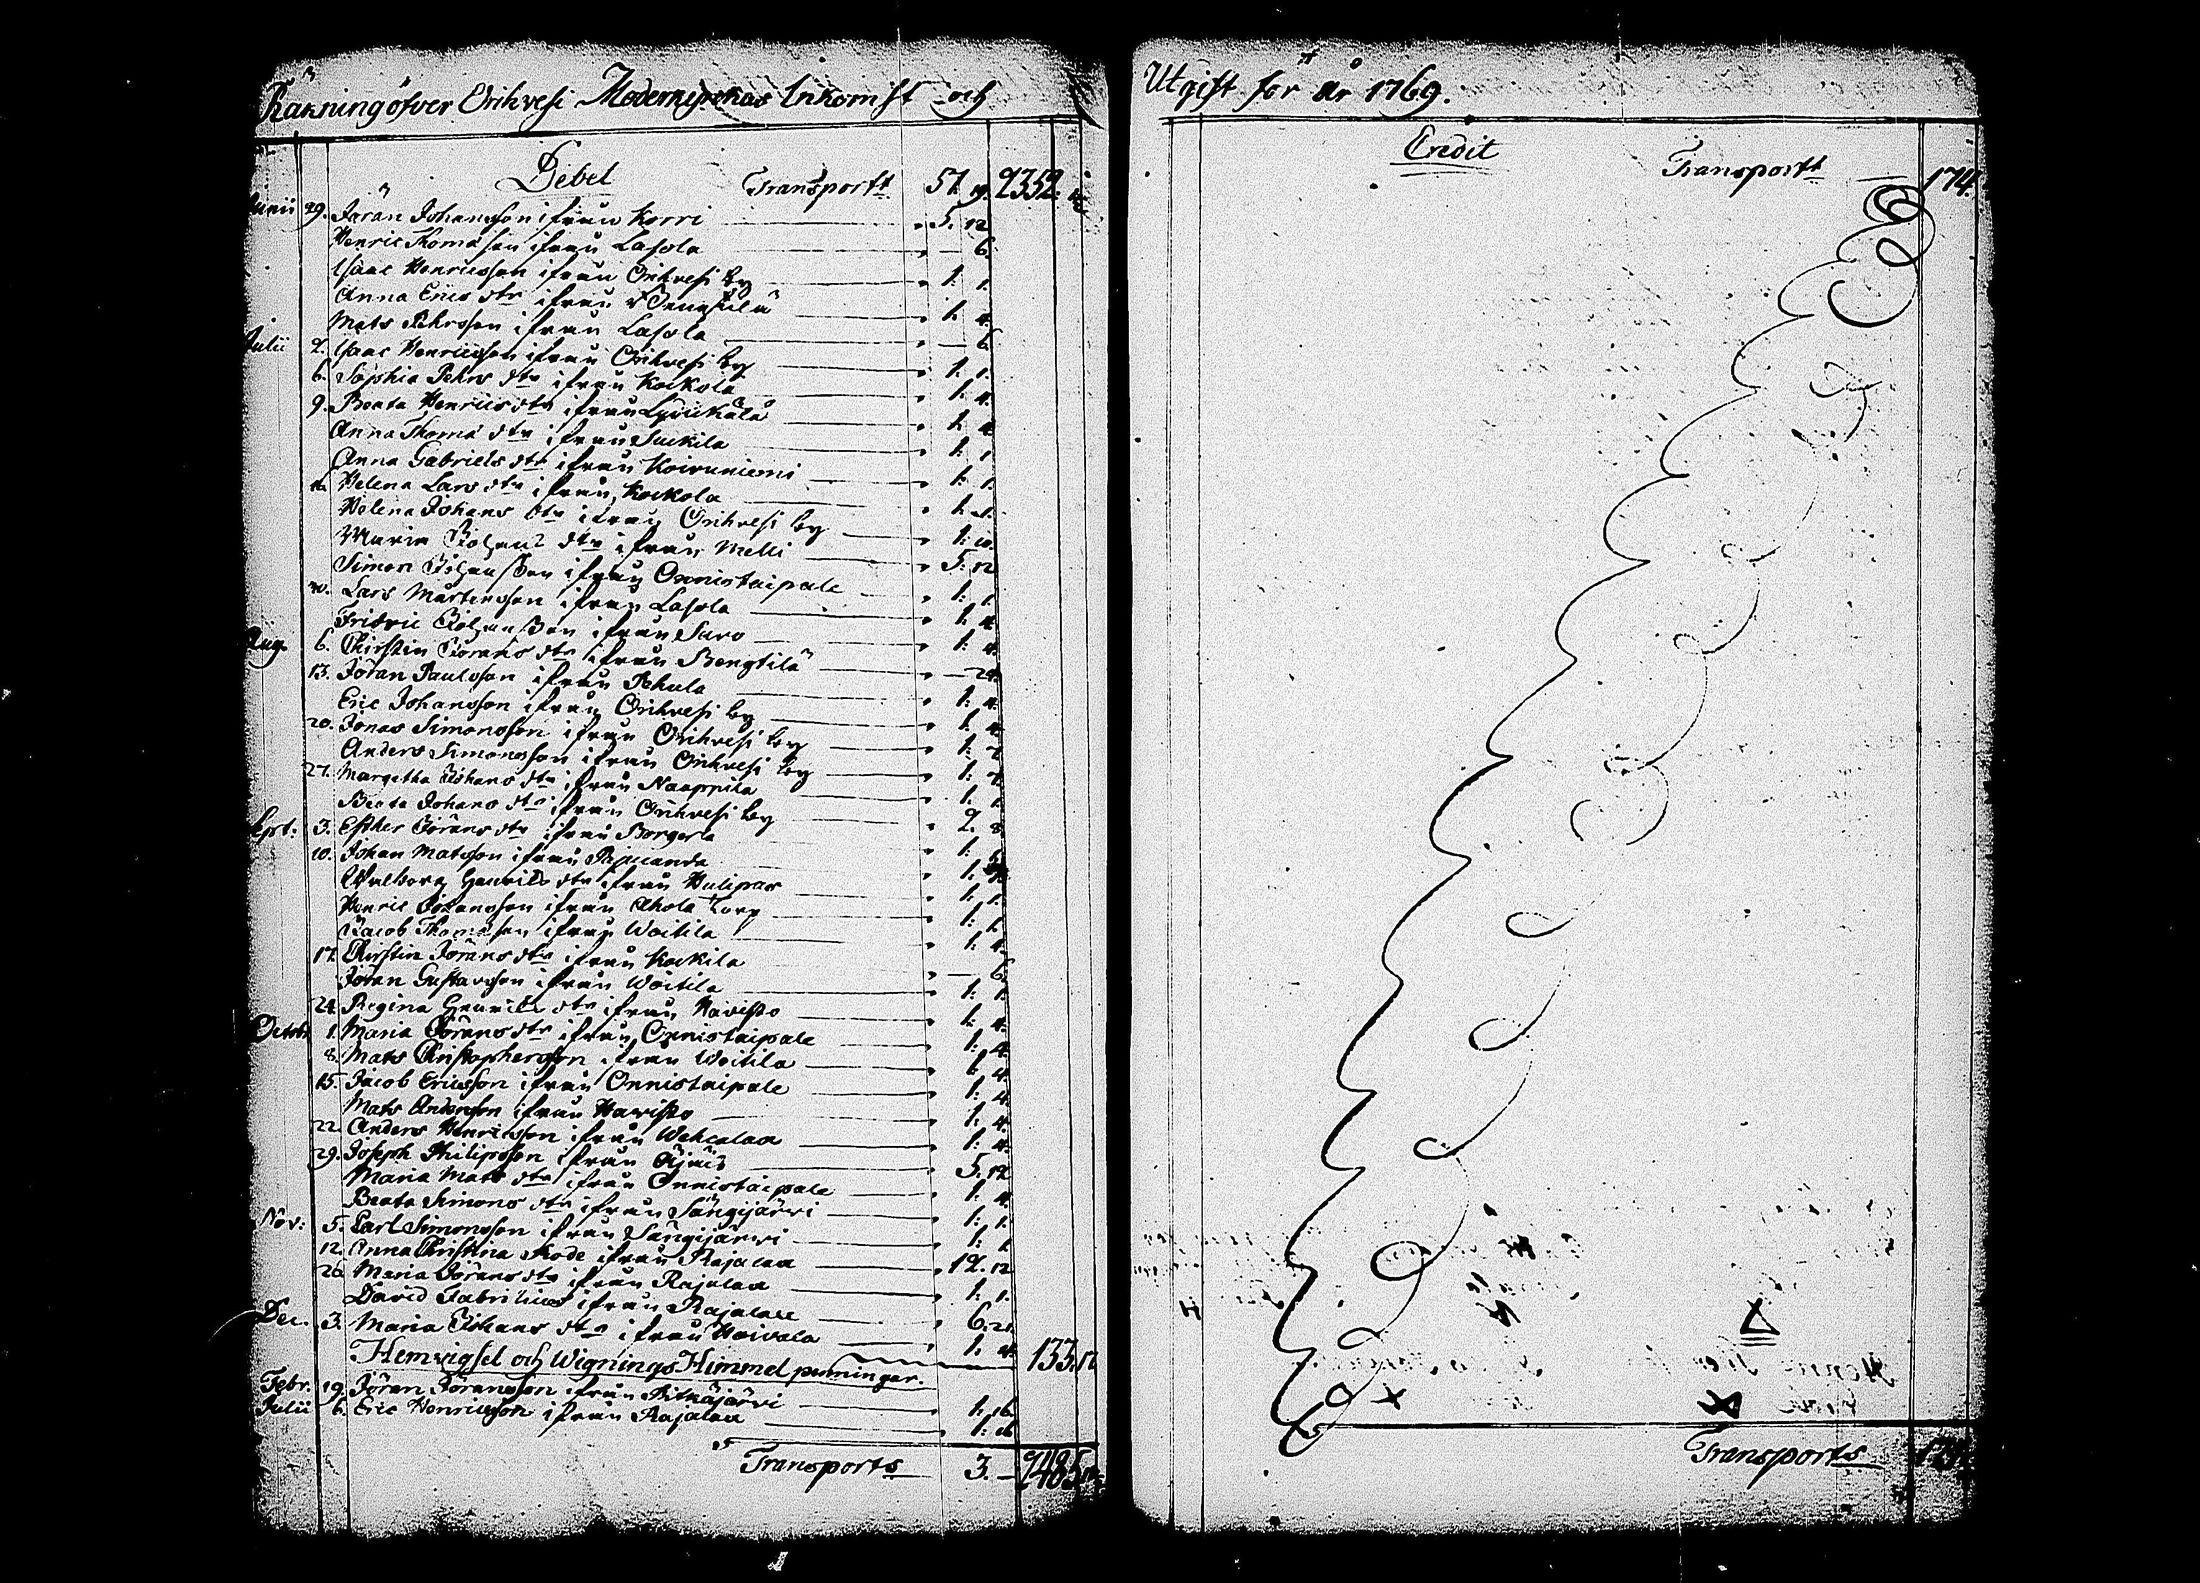 Räkning öfver Orihvesi Moderkyrkas Inkomst och
Debet Transportt 51. 19. 2352.
Junii 29. Jöran Johansson ifrån Korri 5. 12
Henric Thomasson ifrån Lasola — 6.
Isaac Henricsson ifrån Orihvesi by 1. 1.
Anna Erics dtr ifrån Bengtilä 1. 4.
Mats Pehrsson ifrån Lasola — 6.
Julii 2. Isaac Henricsson ifrån Orihvesi by 1. 1.
6. Sophia Pehrs dtr ifrån Kockola 1. 4.
9. Beata Henrics dtr ifrån Lyückälä 1. 4.
Anna Thoma dtr ifrån Suckila 1. 1
Anna Gabriels dtr ifrån Koivuniemi 1. 1.
16. Helena Lars dtr ifrån Kockola 1. 1.
Helena Johans dtr ifrån Orihvesi by 1. 10.
Maria Johans dtr ifrån Melli 5. 12
Simon Johansson ifrån Onnistaipale 1. 1.
Lars Mårtensson ifrån Lasola 1. 4.
Fridric Johansson ifrån Suro 1. 4.
Aug. 6. Christin Jörans dtr ifrån Bengtilä — 24.
13. Jöran Paulsson ifrån Pehula 1. 4.
Eric Johansson ifrån Orihvesi by 1. 4.
20. Jonas Simonsson ifrån Orihvesi by 1. 7
Anders Simonsson ifrån Orihvesi by 1. 7.
27. Margetha Johans dtr ifrån Naappila 1. 1.
Beata Johans dtr ifrån Orihvesi by 2. 8.
Sept. 3. Esther Jörans dtr ifrån Borgerla 1.
10. Johan Matsson ifrån 1.
Walborg Henrics dtr ifrån Hulipas 1. 1.
Henric Johansson ifrån Ahola Torp 1. 1.
Jacob Thomasson ifrån Woitila 1. 4.
17. Christin Jörans dtr ifrån Kockila — 6.
Jöran Gustavsson ifrån Woitila 1. 1.
24. Regina Henrics dtr ifrån Havisto 1. 4.
Octobr. 1. Maria Jörans dtr ifrån Onnistaipale 1. 4.
8. Mats Christophersson ifrån Woitila 1. 4.
15. Jacob Ericsson ifrån Onnistaipale 1. 4.
Mats Andersson ifrån Havisto 1. 4.
22. Anders Henricsson ifrån Wehcalaa 1. 4.
29. Joseph Philipsson ifrån Äjäis 5. 12
Maria Mats dtr ifrån Onnistaipale 1. 4.
Beata Simons dtr ifrån Sängijärvi 1. 1.
Nov: 5. Carl Simonsson ifrån Sängijärvi 1. 1.
12. Anna Christina Skode ifrån Rajalaa 12. 12
26. Maria Jörans dtr ifrån Rajalaa 1. 1.
David Fabritius ifrån Rajalaa 6. 21.
Dec. 3. Maria Johans dtr ifrån Hoivala 1. 4. 133. 12
Hemvigsel och Wignings Himmel penningar.
Febr. 19. Jöran Jöransson ifrån Pitkäjärvi 1. 16.
Julii 6. Eric Henricsson ifrån Rajalaa 1. 16
Transports 3. — 2485.
Utgift för år 1769.
Credit Transportt — 174.
Transports 174.